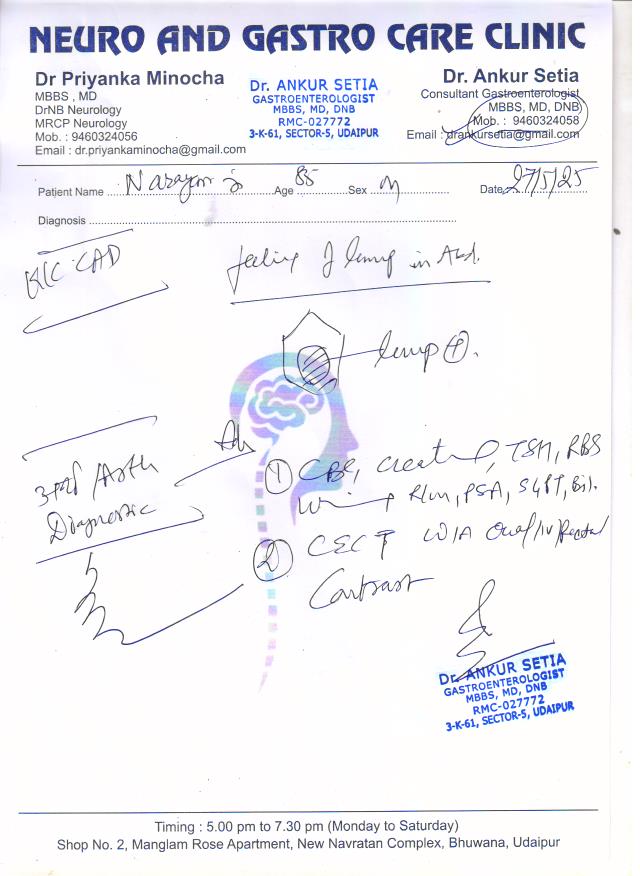 NEURO AND GASTRO CARE CLINIC
Dr Priyanka Minocha
MBBS , MD
DrNB Neurology
MRCP Neurology
Mob. : 9460324056
Email : dr.priyankaminocha@gmail.com
Dr. ANKUR SETIA
GASTROENTEROLOGIST
MBBS, MD, DNB
RMC-027772
3-K-61, SECTOR-5, UDAIPUR
Dr. Ankur Setia
Consultant Gastroenterologist
MBBS, MD, DNB
Mob. : 9460324058
Email : drankursetia@gmail.com
Patient Name Narayan Age 85 Sex M Date 27/5/25
Diagnosis
K/C CAD
feeling of lump in Abd.
lump +.
Adv
① CBC, creat, TSH, RBS
Urine R/M, PSA, SGPT, Bil.
② CECT W/A Oral/IV/Rectal
Contrast
Arth
Diagnostic
Dr. ANKUR SETIA
GASTROENTEROLOGIST
MBBS, MD, DNB
RMC-027772
3-K-61, SECTOR-5, UDAIPUR
Timing : 5.00 pm to 7.30 pm (Monday to Saturday)
Shop No. 2, Manglam Rose Apartment, New Navratan Complex, Bhuwana, Udaipur